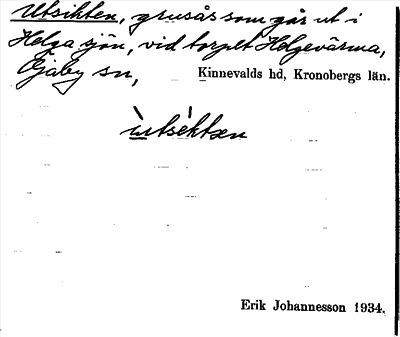 Utsikten, grusås som går ut i
Helga sjön, vid torpet Helgevärma,
Öjaby sn, Kinnevalds hd, Kronobergs län.
ùtsèktæn
Erik Johannesson 1934.